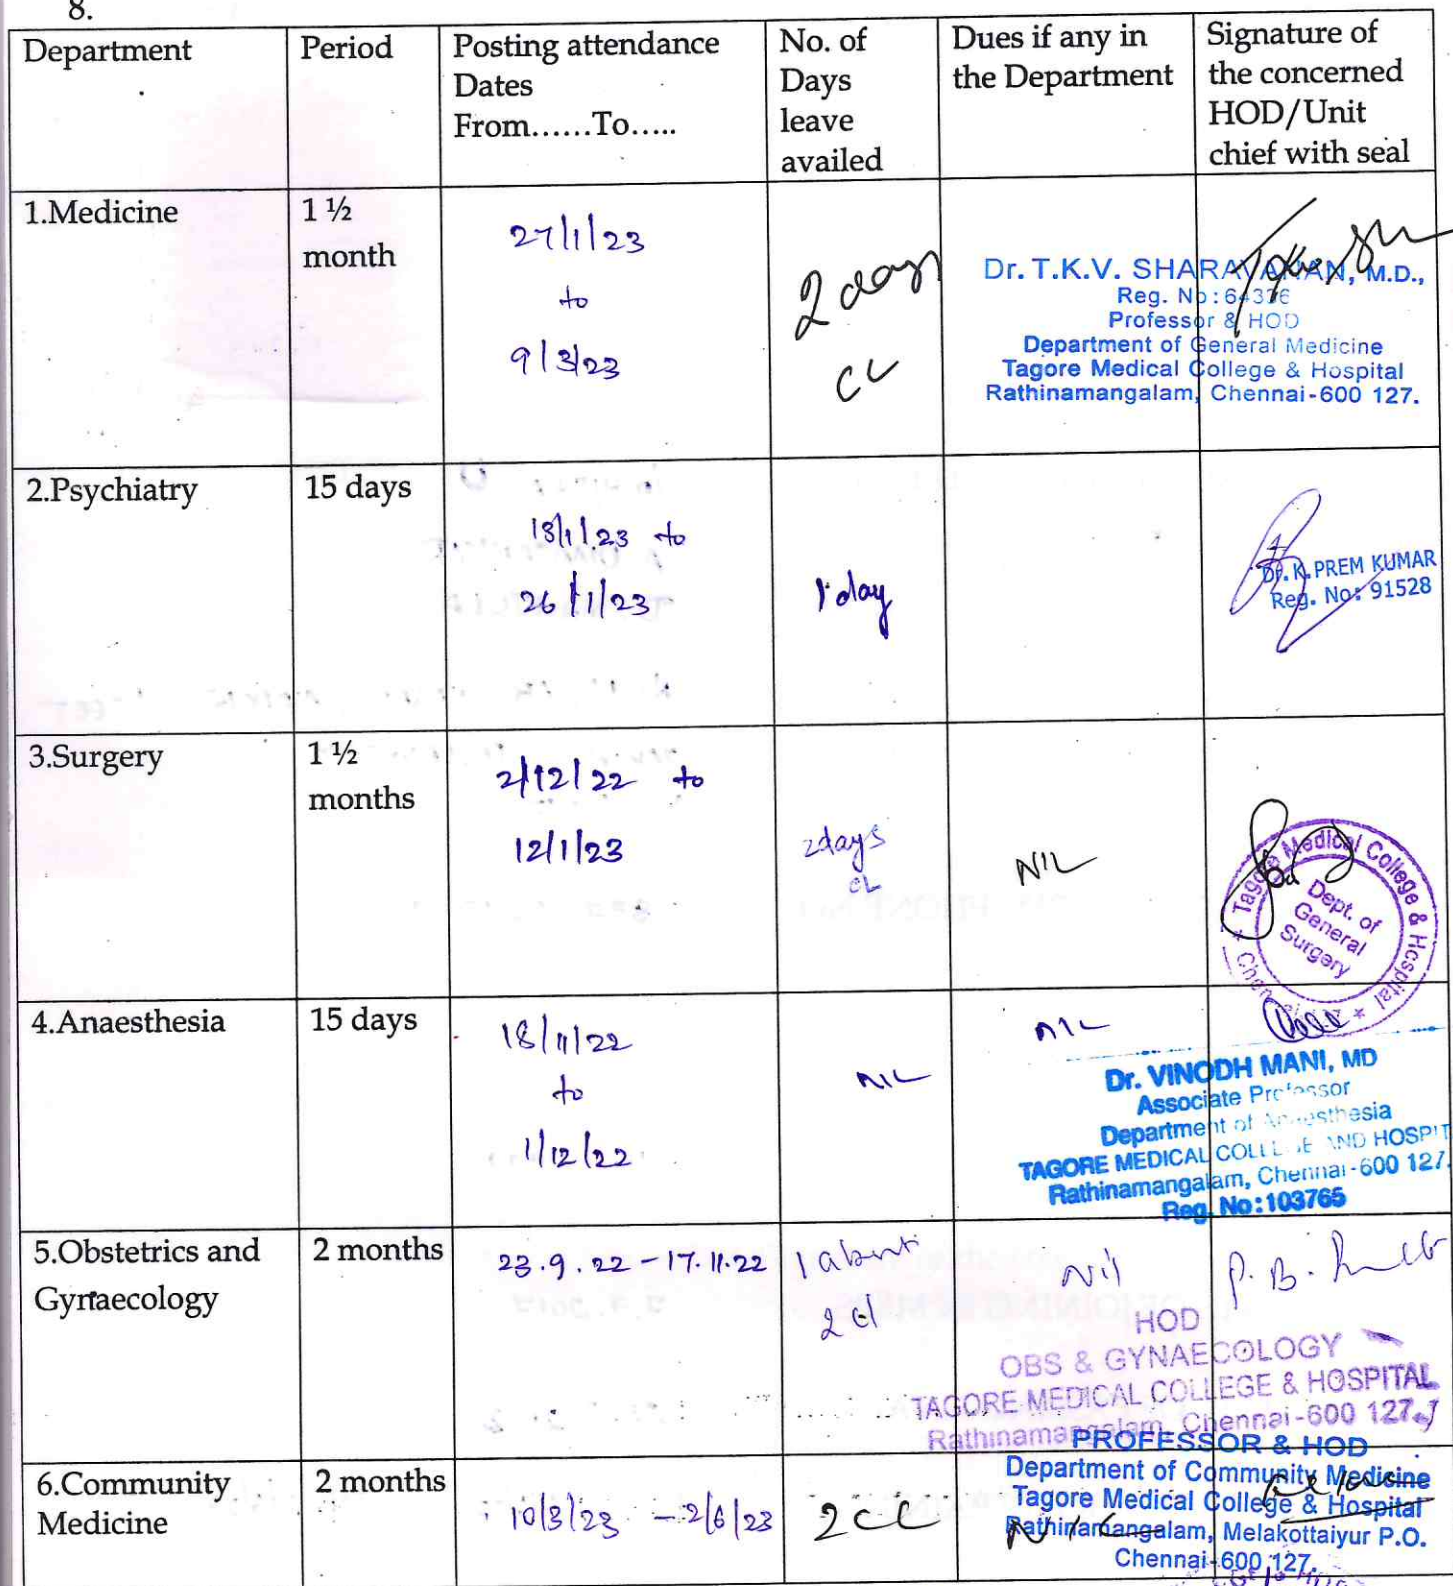 8.
Department
Period
Posting attendance
Dates
From......To.....
No. of
Days
leave
availed
Dues if any in
the Department
Signature of
the concerned
HOD/Unit
chief with seal
1.Medicine
1 ½
month
27/1/23
to
9/3/23
2 days
CL
Dr. T.K.V. SHARAVANAN, M.D.,
Reg. No:64336
Professor & HOD
Department of General Medicine
Tagore Medical College & Hospital
Rathinamangalam, Chennai-600 127.
2.Psychiatry
15 days
13/1/23 to
26/1/23
1 day
Dr. K. PREM KUMAR
Reg. No: 91528
3.Surgery
1 ½
months
2/12/22 to
12/1/23
2days
CL
NIL
Tagore Medical College & Hospital
Dept. of
General
Surgery
4.Anaesthesia
15 days
18/11/22
to
1/12/22
NIL
NIL
Dr. VINODH MANI, MD
Associate Professor
Department of Anaesthesia
TAGORE MEDICAL COLLEGE AND HOSPIT
Rathinamangalam, Chennai-600 127.
Reg. No:103765
5.Obstetrics and
Gynaecology
2 months
23.9.22 - 17.11.22
1 absent
2 cl
Nil
HOD
OBS & GYNAECOLOGY
TAGORE MEDICAL COLLEGE & HOSPITAL
Rathinamangalam, Chennai-600 127.
6.Community
Medicine
2 months
10/3/23 - 2/6/23
2 CL
Nil
PROFESSOR & HOD
Department of Community Medicine
Tagore Medical College & Hospital
Rathinamangalam, Melakottaiyur P.O.
Chennai-600 127.